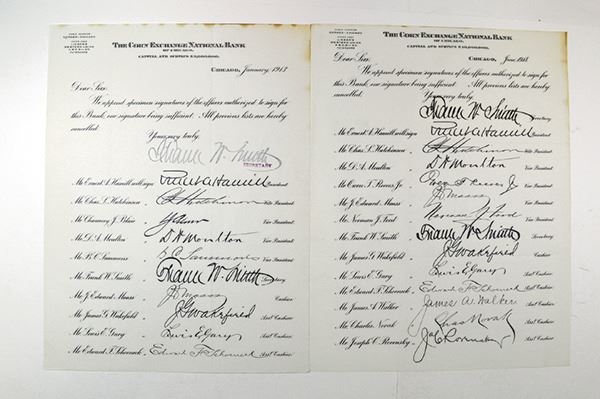 THE CORN EXCHANGE NATIONAL BANK
OF CHICAGO.
CAPITAL AND SURPLUS
CHICAGO, January, 1913
Dear Sir:
We append specimen signatures of the officers authorized to sign for
this Bank, one signature being sufficient. All previous lists are hereby
cancelled.
Yours very truly,
Frank W. Smith
SECRETARY
Mr. Ernest A. Hamill will sign Ernest A. Hamill President
Mr. Chas. L. Hutchinson " Vice President
Mr. Chauncey J. Blair " Vice President
Mr. D. A. Moulton " D. A. Moulton Vice President
Mr. B. C. Sammons " B. C. Sammons Vice President
Mr. Frank W. Smith " Frank W. Smith Secretary
Mr. J. Edward Maass " J. E. Maass Cashier
Mr. James G. Wakefield " J. G. Wakefield Asst Cashier
Mr. Lewis E. Gary " Lewis E. Gary Asst Cashier
Mr. Edward F. Schoeneck " Edward F. Schoeneck Asst Cashier
THE CORN EXCHANGE NATIONAL BANK
OF CHICAGO.
CAPITAL AND SURPLUS
CHICAGO, June, 1918
Dear Sir:
We append specimen signatures of the officers authorized to sign for
this Bank, one signature being sufficient. All previous lists are hereby
cancelled.
Yours very truly,
Frank W. Smith Secretary
Mr. Ernest A. Hamill will sign Ernest A. Hamill President
Mr. Chas. L. Hutchinson " Vice President
Mr. D. A. Moulton " D. A. Moulton Vice President
Mr. Owen T. Reeves, Jr. " Owen T. Reeves Jr Vice President
Mr. J. Edward Maass " J. E. Maass Vice President
Mr. Norman J. Ford " Norman J. Ford Vice President
Mr. Frank W. Smith " Frank W. Smith Secretary
Mr. James G. Wakefield " J. G. Wakefield Cashier
Mr. Lewis E. Gary " Lewis E. Gary Asst Cashier
Mr. Edward F. Schoeneck " Edward F. Schoeneck Asst Cashier
Mr. James A. Walker " James A. Walker Asst Cashier
Mr. Charles Novak " Chas Novak Asst Cashier
Mr. Joseph C. Rovensky " Jos C. Rovensky Asst Cashier